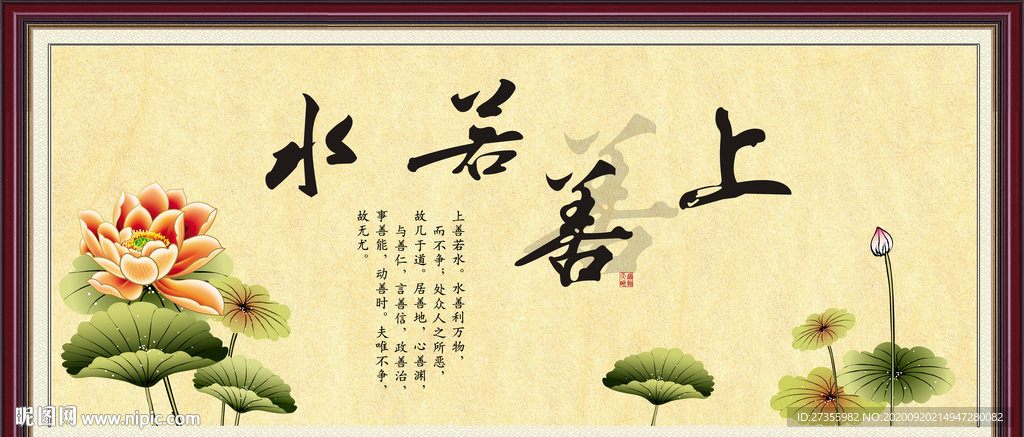 上善若水
上善若水。水善利万物，
而不争；处众人之所恶，
故几于道。居善地，心善渊，
与善仁，言善信，政善治，
事善能，动善时。夫唯不争，
故无尤。
昵图网 www.nipic.com
ID:27355982 NO:20200920214947280082